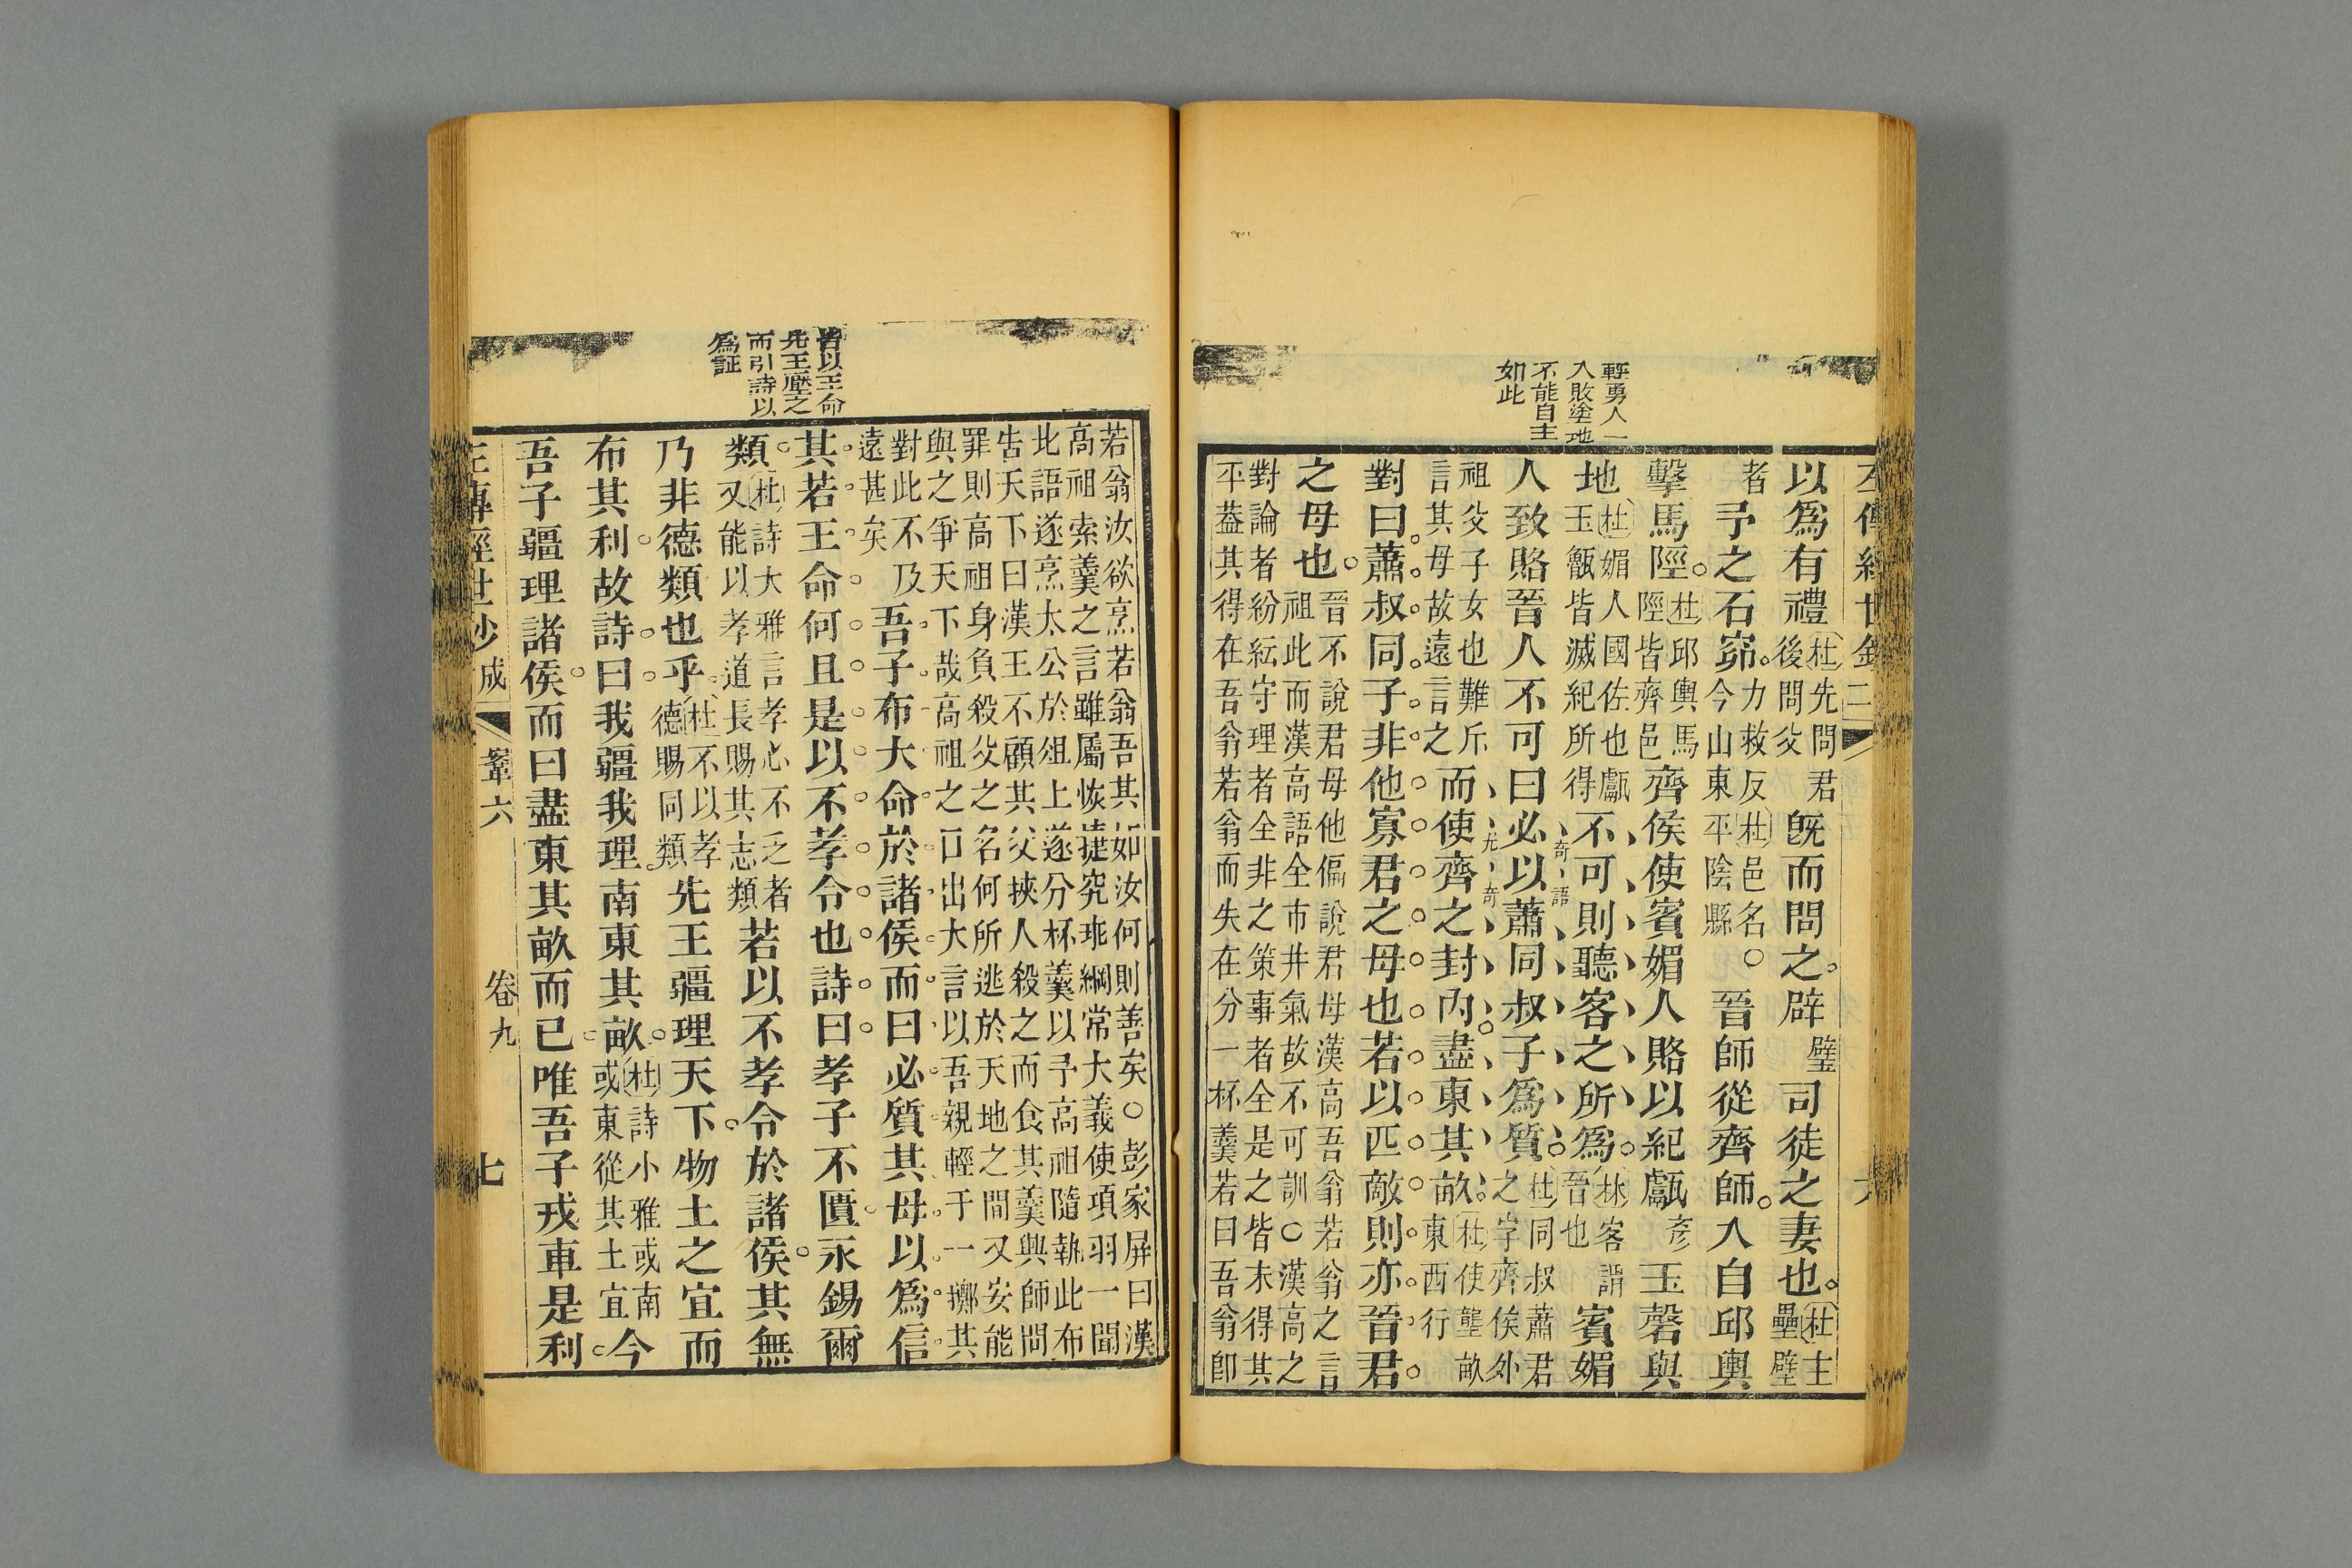 輕勇人一
入敗塗地
不能自主
如此
以爲有禮杜先問君後問父既而問之。辟璧司徒之妻也。杜主壘壁
者予之石窌。力救反杜邑名○今山東平陰縣晉師從齊師。入自邱輿
擊馬陘。杜邱輿馬陘皆齊邑齊侯使賓媚人賂以紀甗彥玉磬與
地杜媚人國佐也甗玉甑皆滅紀所得不可則聽客之所爲。林客謂晉也賓媚
人致賂晉人不可曰必以蕭同叔子爲質。杜同叔蕭君之字齊侯外
祖父子女也難斥言其母故遠言之而使齊之封內盡東其畝。杜使壟畝東西行
對曰。蕭叔同子。非他寡君之母也若以匹敵則亦晉君
之母也。晉不說君母他偏說君母漢高吾翁若翁之言祖此而漢高語全市井氣故不可訓○漢高之
對論者紛紜守理者全非之策事者全是之皆未得其
平葢其得在吾翁若翁而失在分一杯羹若曰吾翁卽
皆以王命
先王壓之
而引詩以
爲証
若翁汝欲烹若翁吾其如汝何則善矣○彭家屏曰漢
高祖索羹之言雖屬恢捷究乖綱常大義使項羽一聞
此語遂烹太公於俎上遂分杯羹以予高祖隨執此布
告天下曰漢王不顧其父挾人殺之而食其羹興師問
罪則高祖身負殺父之名何所逃於天地之間又安能
與之爭天下哉高祖之口出大言以吾親輕于一擲其
對此不及遠甚矣吾子布大命於諸侯而曰必質其母以爲信
其若王命何且是以不孝令也詩曰孝子不匱永錫爾
類。杜詩大雅言孝心不乏者又能以孝道長賜其志類若以不孝令於諸侯。其無
乃非德類也乎。杜不以孝德賜同類先王疆理天下。物土之宜而
布其利。故詩曰。我疆我理南東其畝。杜詩小雅或南或東從其土宜今
吾子疆理諸侯。而曰盡東其畝而已唯吾子戎車是利
左傳經世鈔 成 鞌六 卷九 七